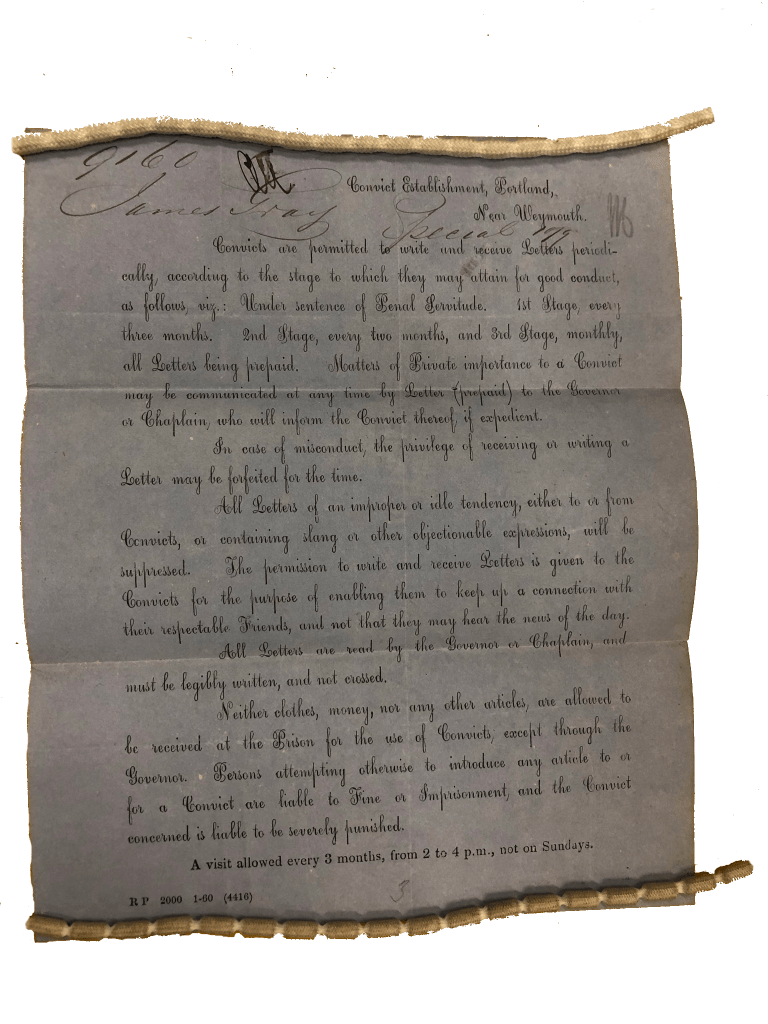 9160
Convict Establishment, Portland,
James Gray Near Weymouth.
Special
Convicts are permitted to write and receive Letters periodi-
cally, according to the stage to which they may attain for good conduct,
as follows, viz.: Under sentence of Penal Servitude. 1st Stage, every
three months. 2nd Stage, every two months, and 3rd Stage, monthly,
all Letters being prepaid. Matters of Private importance to a Convict
may be communicated at any time by Letter (prepaid) to the Governor
or Chaplain, who will inform the Convict thereof, if expedient.
In case of misconduct, the privilege of receiving or writing a
Letter may be forfeited for the time.
All Letters of an improper or idle tendency, either to or from
Convicts, or containing slang or other objectionable expressions, will be
suppressed. The permission to write and receive Letters is given to the
Convicts for the purpose of enabling them to keep up a connection with
their respectable Friends, and not that they may hear the news of the day.
All Letters are read by the Governor or Chaplain, and
must be legibly written, and not crossed.
Neither clothes, money, nor any other articles, are allowed to
be received at the Prison for the use of Convicts, except through the
Governor. Persons attempting otherwise to introduce any article to or
for a Convict, are liable to Fine or Imprisonment, and the Convict
concerned is liable to be severely punished.
A visit allowed every 3 months, from 2 to 4 p.m., not on Sundays.
R P 2000 1-60 (4416)
3